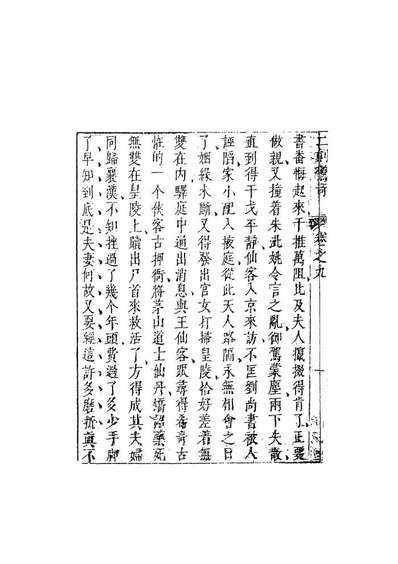 二刻驚奇 卷之九 一
書番悔起來千推萬阻比及夫人攛掇得肯了正要
做親又撞着朱泚姚令言之亂御駕蒙塵兩下失散
直到得干戈平靜仙客入京來訪不匡劉尚書被人
誣陷家小配入掖庭從此天人路隔永無相會之日
了姻緣未斷又得發出宮女打掃皇陵恰好差着無
雙在內驛庭中通出消息與王仙客跟尋得希奇古
怪的一個俠客古押衙將茅山道士仙丹矯詔藥死
無雙在皇陵上贖出尸首來救活了方得成其夫婦
同歸襄漢不知挫過了幾個年頭費過了多少手脚
了早知到底是夫妻何故又要經這許多磨折真不